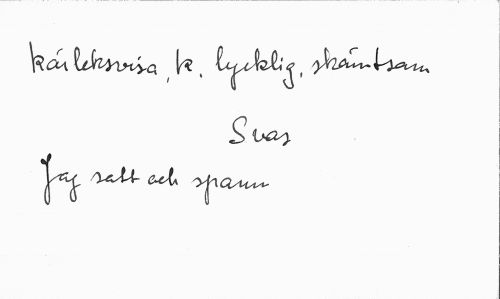 kärleksvisa, k. lycklig, skämtsam
Svar
Jag satt och spann